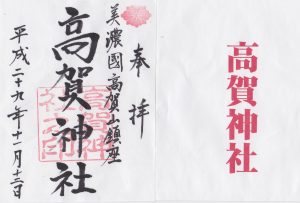 奉拝
美濃國高賀山鎮座
高賀神社
高賀神社之印
平成二十九年十一月十三日
高賀神社